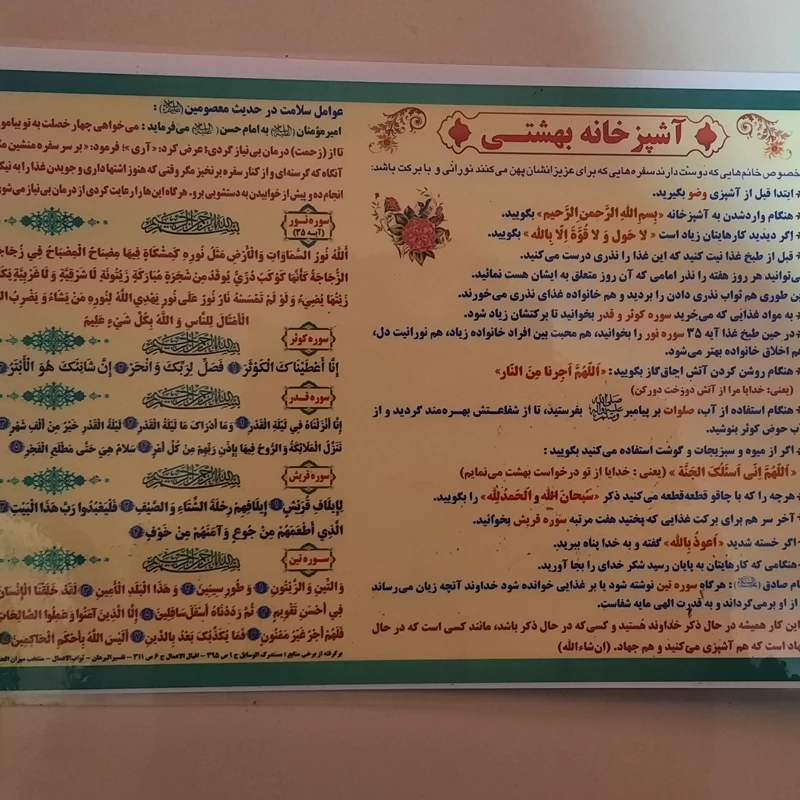 آشپزخانه بهشتی
خصوص خانم‌هایی که دوست دارند سفره‌هایی که برای عزیزانشان پهن می‌کنند نورانی و با برکت باشد:
* ابتدا قبل از آشپزی وضو بگیرید.
* هنگام واردشدن به آشپزخانه «بِسمِ اللهِ الرَّحمنِ الرَّحیم» بگویید.
* اگر دیدید کارهایتان زیاد است « لا حَولَ وَ لا قُوَّةَ اِلّا بِالله» بگویید.
* قبل از طبخ غذا نیت کنید که این غذا را نذری درست می‌کنید.
می‌توانید هر روز هفته را نذر امامی که آن روز متعلق به ایشان هست نمائید.
ین طوری هم ثواب نذری دادن را بردید و هم خانواده غذای نذری می‌خورند.
* به مواد غذایی که می‌خرید سوره کوثر و قدر بخوانید تا برکتشان زیاد شود.
* در حین طبخ غذا آیه ۳۵ سوره نور را بخوانید، هم محبت بین افراد خانواده زیاد، هم نورانیت دل،
م اخلاق خانواده بهتر می‌شود.
* هنگام روشن کردن آتش اجاق‌گاز بگویید: «اَللّهُمَّ اَجِرنا مِنَ النّار»
(یعنی: خدایا مرا از آتش دوزخت دورکن)
* هنگام استفاده از آب، صلوات بر پیامبر ﷺ بفرستید، تا از شفاعتش بهره‌مند گردید و از
ب حوض کوثر بنوشید.
* اگر از میوه و سبزیجات و گوشت استفاده می‌کنید بگویید :
« اَللّهُمَّ اِنّی اَسئَلُکَ الجَنَّة » (یعنی : خدایا از تو درخواست بهشت می‌نمایم)
* هرچه را که با چاقو قطعه‌قطعه می‌کنید ذکر «سُبحانَ الله و الحَمدُلِله» را بگویید.
* آخر سر هم برای برکت غذایی که پختید هفت مرتبه سوره قریش بخوانید.
* اگر خسته شدید «اَعوذُ بِالله» گفته و به خدا پناه ببرید.
* هنگامی که کارهایتان به پایان رسید شکر خدای را بجا آورید.
ام صادق (علیه‌السلام) : هرگاه سوره تین نوشته شود یا بر غذایی خوانده شود خداوند آنچه زیان می‌رساند
از او برمی‌گرداند و به قدرت الهی مایه شفاست.
این کار همیشه در حال ذکر خداوند هستید و کسی‌که در حال ذکر باشد، مانند کسی است که در حال
هاد است که هم آشپزی می‌کنید و هم جهاد. (ان‌شاءالله)
عوامل سلامت در حدیث معصومین :
امیرمؤمنان به امام حسن می‌فرماید : می‌خواهی چهار خصلت به تو بیامو
تا از (زحمت) درمان بی‌نیاز گردی؛ عرض کرد: «آری »؛ فرمود: « بر سر سفره منشین مگ
آنگاه که گرسنه‌ای و از کنار سفره برنخیز مگر وقتی که هنوز اشتها داری و جویدن غذا را به نیک
انجام ده و پیش از خوابیدن به دستشویی برو. هرگاه این‌ها را رعایت کردی از درمان بی‌نیاز می‌شوی
سوره نور
(آیه ۳۵)
بسم الله الرحمن الرحیم
اَللَّهُ نُورُ السَّمَاوَاتِ وَالْأَرْضِ مَثَلُ نُورِهِ كَمِشْكَاةٍ فِيهَا مِصْبَاحٌ الْمِصْبَاحُ فِي زُجَاجَ
الزُّجَاجَةُ كَأَنَّهَا كَوْكَبٌ دُرِّيٌّ يُوقَدُ مِنْ شَجَرَةٍ مُبَارَكَةٍ زَيْتُونَةٍ لَا شَرْقِيَّةٍ وَلَا غَرْبِيَّةٍ يَكَ
زَيْتُهَا يُضِيءُ وَلَوْ لَمْ تَمْسَسْهُ نَارٌ نُورٌ عَلَى نُورٍ يَهْدِي اللَّهُ لِنُورِهِ مَنْ يَشَاءُ وَ يَضْرِبُ اللَّ
الْأَمْثَالَ لِلنَّاسِ وَ اللَّهُ بِكُلِّ شَيْءٍ عَلِيمٌ
سوره کوثر
بسم الله الرحمن الرحیم
إِنَّا أَعْطَيْنَاكَ الْكَوْثَرَ ۱ فَصَلِّ لِرَبِّكَ وَ انْحَرْ ۲ إِنَّ شَانِئَكَ هُوَ الْأَبْتَرُ
سوره قدر
بسم الله الرحمن الرحیم
إِنَّا أَنْزَلْنَاهُ فِي لَيْلَةِ الْقَدْرِ ۱ وَمَا أَدْرَاكَ مَا لَيْلَةُ الْقَدْرِ ۲ لَيْلَةُ الْقَدْرِ خَيْرٌ مِنْ أَلْفِ شَهْرٍ
تَنَزَّلُ الْمَلَائِكَةُ وَ الرُّوحُ فِيهَا بِإِذْنِ رَبِّهِمْ مِنْ كُلِّ أَمْرٍ ۴ سَلَامٌ هِيَ حَتَّى مَطْلَعِ الْفَجْرِ ۵
سوره قریش
بسم الله الرحمن الرحیم
لِإِيلَافِ قُرَيْشٍ ۱ إِيلَافِهِمْ رِحْلَةَ الشِّتَاءِ وَ الصَّيْفِ ۲ فَلْيَعْبُدُوا رَبَّ هَذَا الْبَيْتِ
الَّذِي أَطْعَمَهُمْ مِنْ جُوعٍ وَ آمَنَهُمْ مِنْ خَوْفٍ ۴
سوره تین
بسم الله الرحمن الرحیم
وَ التِّينِ وَ الزَّيْتُونِ ۱ وَ طُورِ سِينِينَ ۲ وَ هَذَا الْبَلَدِ الْأَمِينِ ۳ لَقَدْ خَلَقْنَا الْإِنْسَانَ
فِي أَحْسَنِ تَقْوِيمٍ ۴ ثُمَّ رَدَدْنَاهُ أَسْفَلَ سَافِلِينَ ۵ إِلَّا الَّذِينَ آمَنُوا وَ عَمِلُوا الصَّالِحَاتِ
فَلَهُمْ أَجْرٌ غَيْرُ مَمْنُونٍ ۶ فَمَا يُكَذِّبُكَ بَعْدُ بِالدِّينِ ۷ أَلَيْسَ اللَّهُ بِأَحْكَمِ الْحَاكِمِينَ ۸
برگرفته از برخی منابع : مستدرک الوسایل ج ۱ ص ۳۹۵ - اقبال الاعمال ج ۶ ص ۳۱۱ - تفسیرالبرهان - ثواب‌الاعمال - منتخب میزان الحک